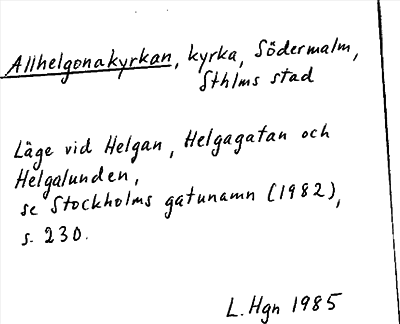 Allhelgonakyrkan, kyrka, Södermalm,
Sthlms stad
Läge vid Helgan, Helgagatan och
Helgalunden,
se Stockholms gatunamn (1982),
s. 230.
L. Hgn 1985